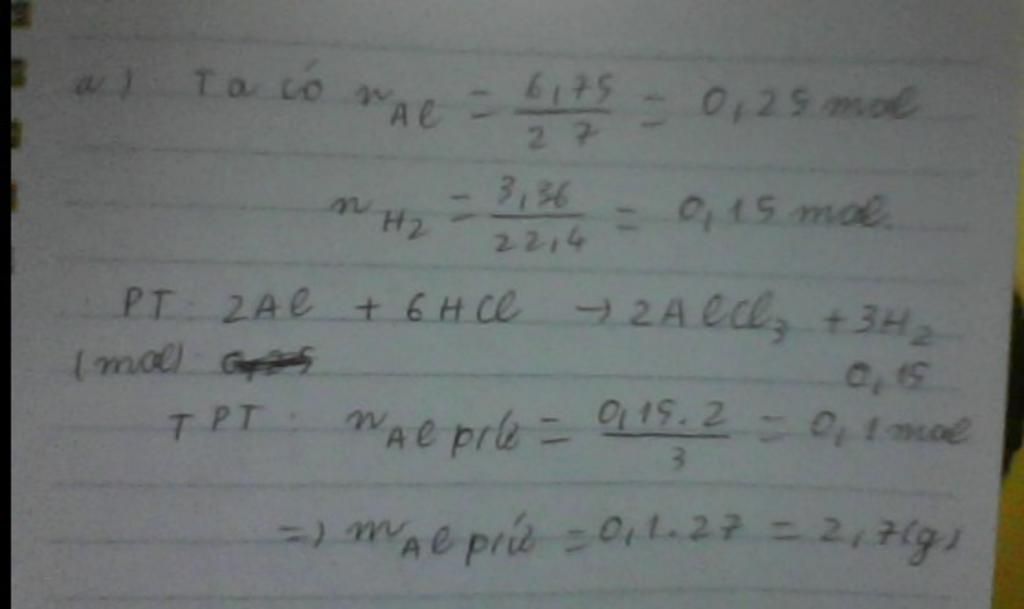 a) Ta có nAl = 6,75/27 = 0,25 mol
nH2 = 3,36/22,4 = 0,15 mol.
PT: 2Al + 6HCl → 2AlCl3 + 3H2
(mol) 0,15
TPT: nAl pứ = 0,15.2/3 = 0,1 mol
=) mAl pứ = 0,1.27 = 2,7(g)